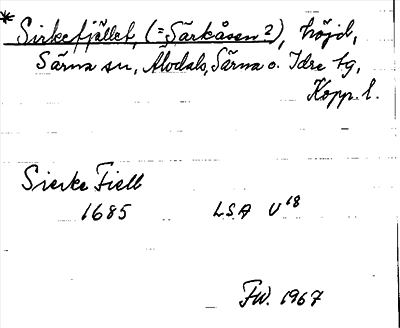 * Sirkefjället, (= Särkåsen 2), höjd,
Särna sn, Älvdals, Särna o. Idre tg,
Kopp. l.
Sierke Fiell
1685 LSA U18
FW. 1967